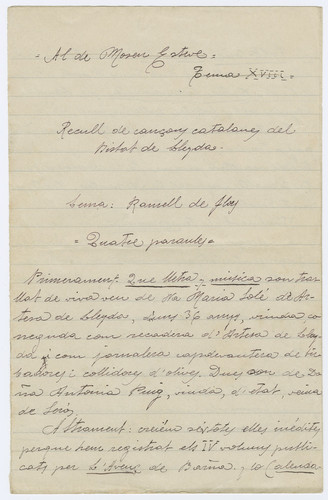 = Al de Mosen Esteve =
Tema XVIII.=
Recull de cançons catalanes del
Bisbat de Lleyda.
Lema: Ramell de flors
= Quatre paraules =
Primerament. Que lletra y música son tras
llat de viva veu de Na Maria Solé de Ar-
tesa de Lleyda, d'uns 36 anys, viuda co
neguda com recadera d'Artesa de Lley
da y com jornalera
bañores i collidors d'olives. Dues son de Do
ña Antonia Puig, viuda, d'etat, veina
de Seròs.
Altrament: creiem éstotes elles inèdites
perque hem registrat els IV volums publi
cats per L'Avenç de Barna, y lo Calenda-